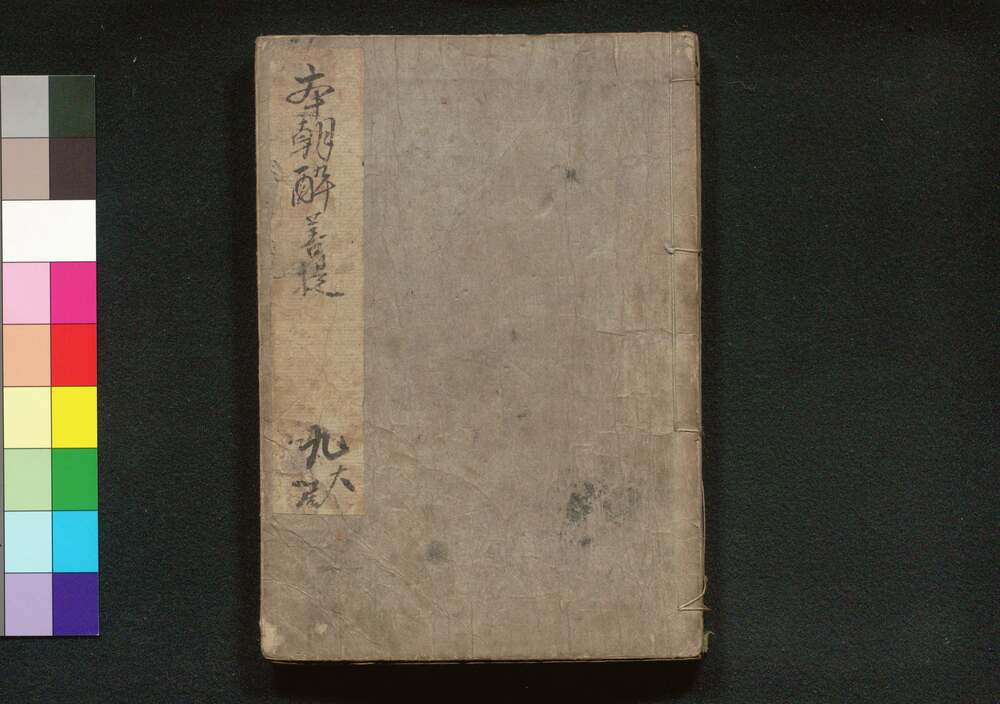 本朝酔菩提
九
大尾